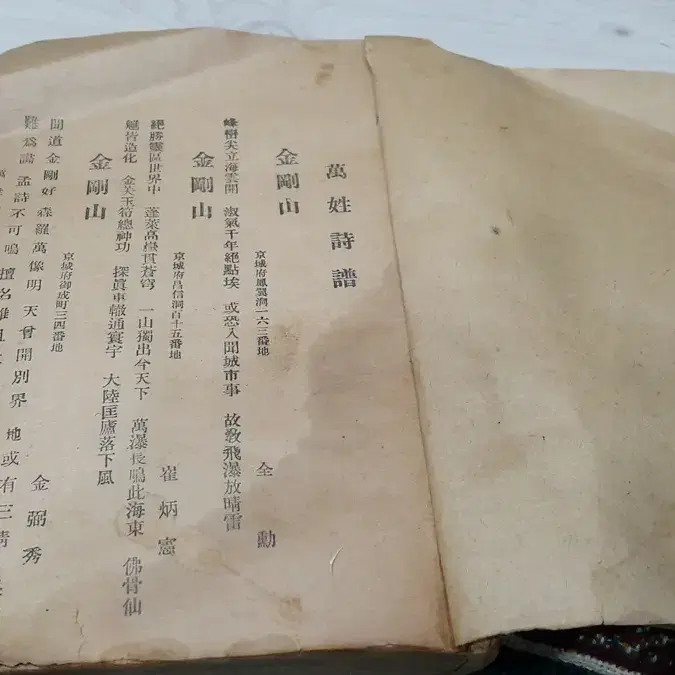 萬姓詩譜
金剛山
京城府鳳翼洞一六三番地 全勳
峰巒尖立海雲開 淑氣千年絕點埃 或恐人聞城市事 故敎飛瀑放晴雷
金剛山
京城府昌信洞百十五番地 崔炳憲
絕勝靈區世界中 蓬萊高 貫蒼穹 一山獨出今天下 萬瀑長鳴此海東 佛骨仙
皆造化 金 玉筍總神功 探眞車轍通寰宇 大陸匡廬落下風
金剛山
京城府御成町三四番地 金弼秀
聞道金剛好 森羅萬像明 天曾開別界 地或有三淸
難爲 孟詩不可鳴 擅名雄